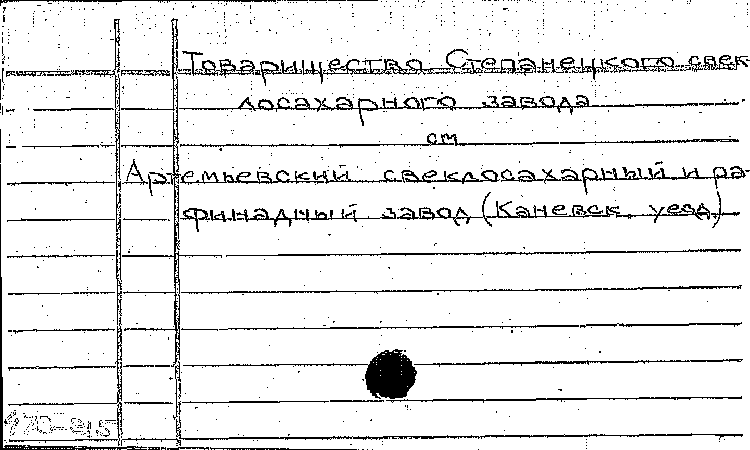 Товарищество Степанецкого свек-
лосахарного завода
см
Артемьевский свеклосахарный и ра-
финадный завод (Каневск. уезд)